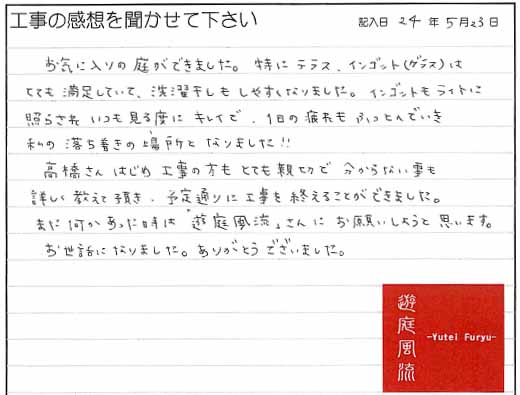 工事の感想を聞かせて下さい
記入日 24 年 5月 23 日
お気に入りの庭ができました。特にテラス、インゴット(ガラス)は
とても満足していて、洗濯干しもしやすくなりました。インゴットもライトに
照らされ いつも見る度に キレイで、1日の疲れも ふっとんでいき
私の落ち着きの場所と なりました!!
高橋さん はじめ 工事の方も とても親切で 分からない事も
詳しく教えて頂き、予定通りに工事を終えることができました。
また何かあった時は「遊庭風流」さんに お願いしようと思います。
お世話になりました。ありがとうございました。
遊庭風流
-Yutei Furyu-